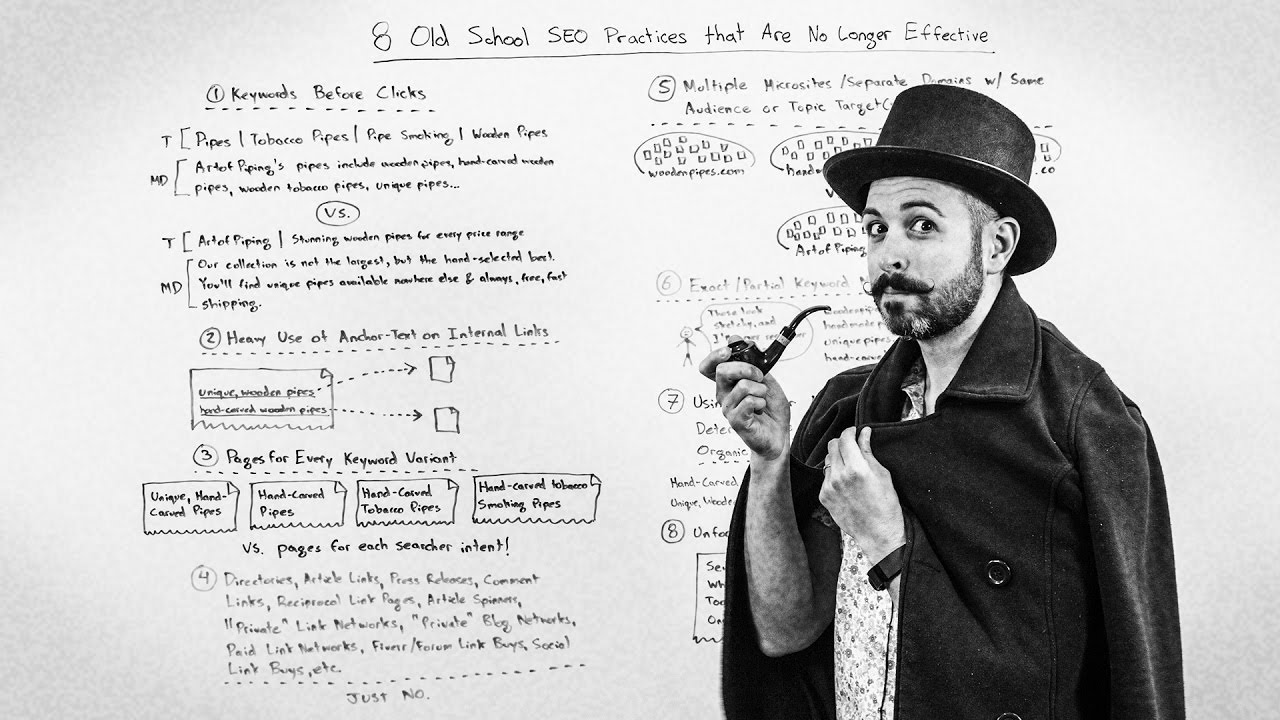 8 Old School SEO Practices that Are No Longer Effective
① Keywords Before Clicks
T [ Pipes | Tobacco Pipes | Pipe Smoking | Wooden Pipes
MD [ ArtofPiping's pipes include wooden pipes, hand-carved wooden
pipes, wooden tobacco pipes, unique pipes...
VS.
T [ ArtofPiping | Stunning wooden pipes for every price range
MD [ Our collection is not the largest, but the hand-selected best.
You'll find unique pipes available nowhere else & always, free, fast
shipping.
② Heavy Use of Anchor-Text on Internal Links
unique, wooden pipes
hand-carved wooden pipes
③ Pages for Every Keyword Variant
Unique, Hand-
Carved Pipes
Hand-Carved
Pipes
Hand-Carved
Tobacco Pipes
Hand-carved tobacco
Smoking Pipes
VS. pages for each searcher intent!
④ Directories, Article Links, Press Releases, Comment
Links, Reciprocal Link Pages, Article Spinners,
"Private" Link Networks, "Private" Blog Networks,
Paid Link Networks, Fiverr/Forum Link Buys, Social
Link Buys, etc.
JUST NO.
⑤ Multiple Microsites/Separate Domains w/ Same
Audience or Topic Target
woodenpipes.com
.co
ArtofPiping
⑥ Exact/Partial Keyword
These look
sketchy, and
woodenpip
handmadep
uniquepipes
hand-carve
⑦ Using
Deter
Organic
Hand-Carved
Unique, Woode
⑧ Unfo
Se
Wh
Too
On